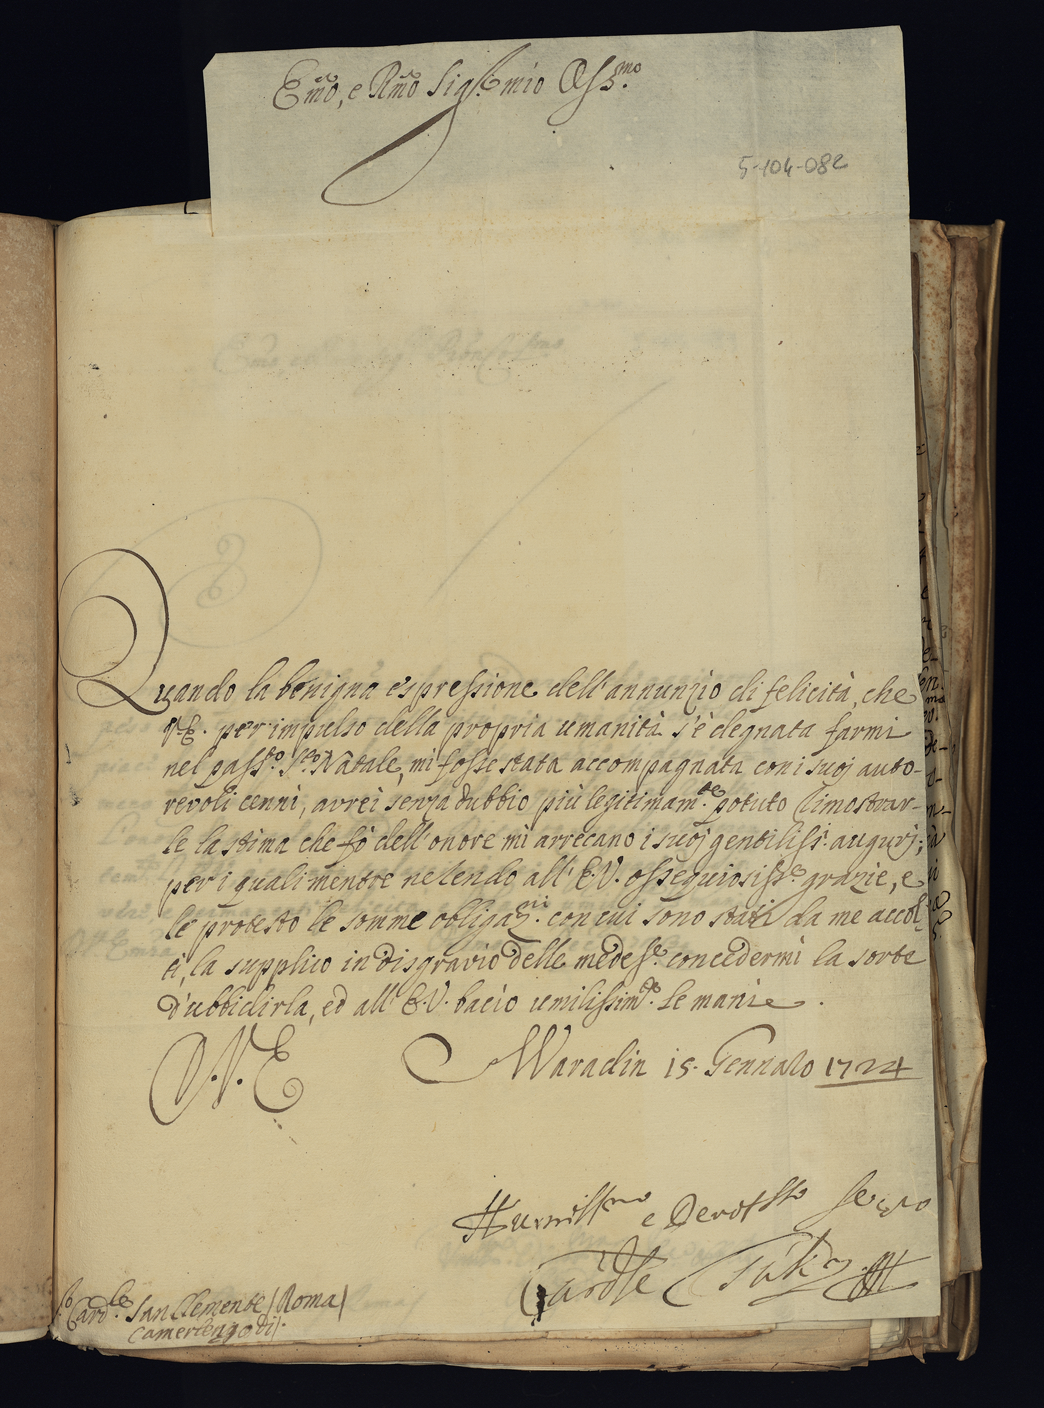 Em̃o, e Rm̃o Sig.r mio Oss.mo
5-104-082
Quando la benigna espressione dell'annunzio di felicità, che
V.E. per impulso della propria umanità s'è degnata farmi
nel pass.to S.to Natale, mi fosse stata accompagnata con i suoj auto-
revoli cenni, avrei senza dubbio più legitimam.te potuto dimostrar-
le la stima che fò dell'onore mi arrecano i suoj gentiliss.i augurj;
per i quali mentre ne rendo all'E.V. ossequiosiss.e grazie, e
le protesto le somme obligaz.ni con cui sono stati da me accol-
ti, la supplico in disgravio delle medes.e concedermi la sorte
d'ubbidirla, ed all'E.V. bacio umilissim.te le mani.
D.V.E Waradin 15. Gennaro 1724
Humiliss.mo e Devot.sso Servo
Cardle
S.r Card.le San Clemente /Roma/
Camerlengo di/.